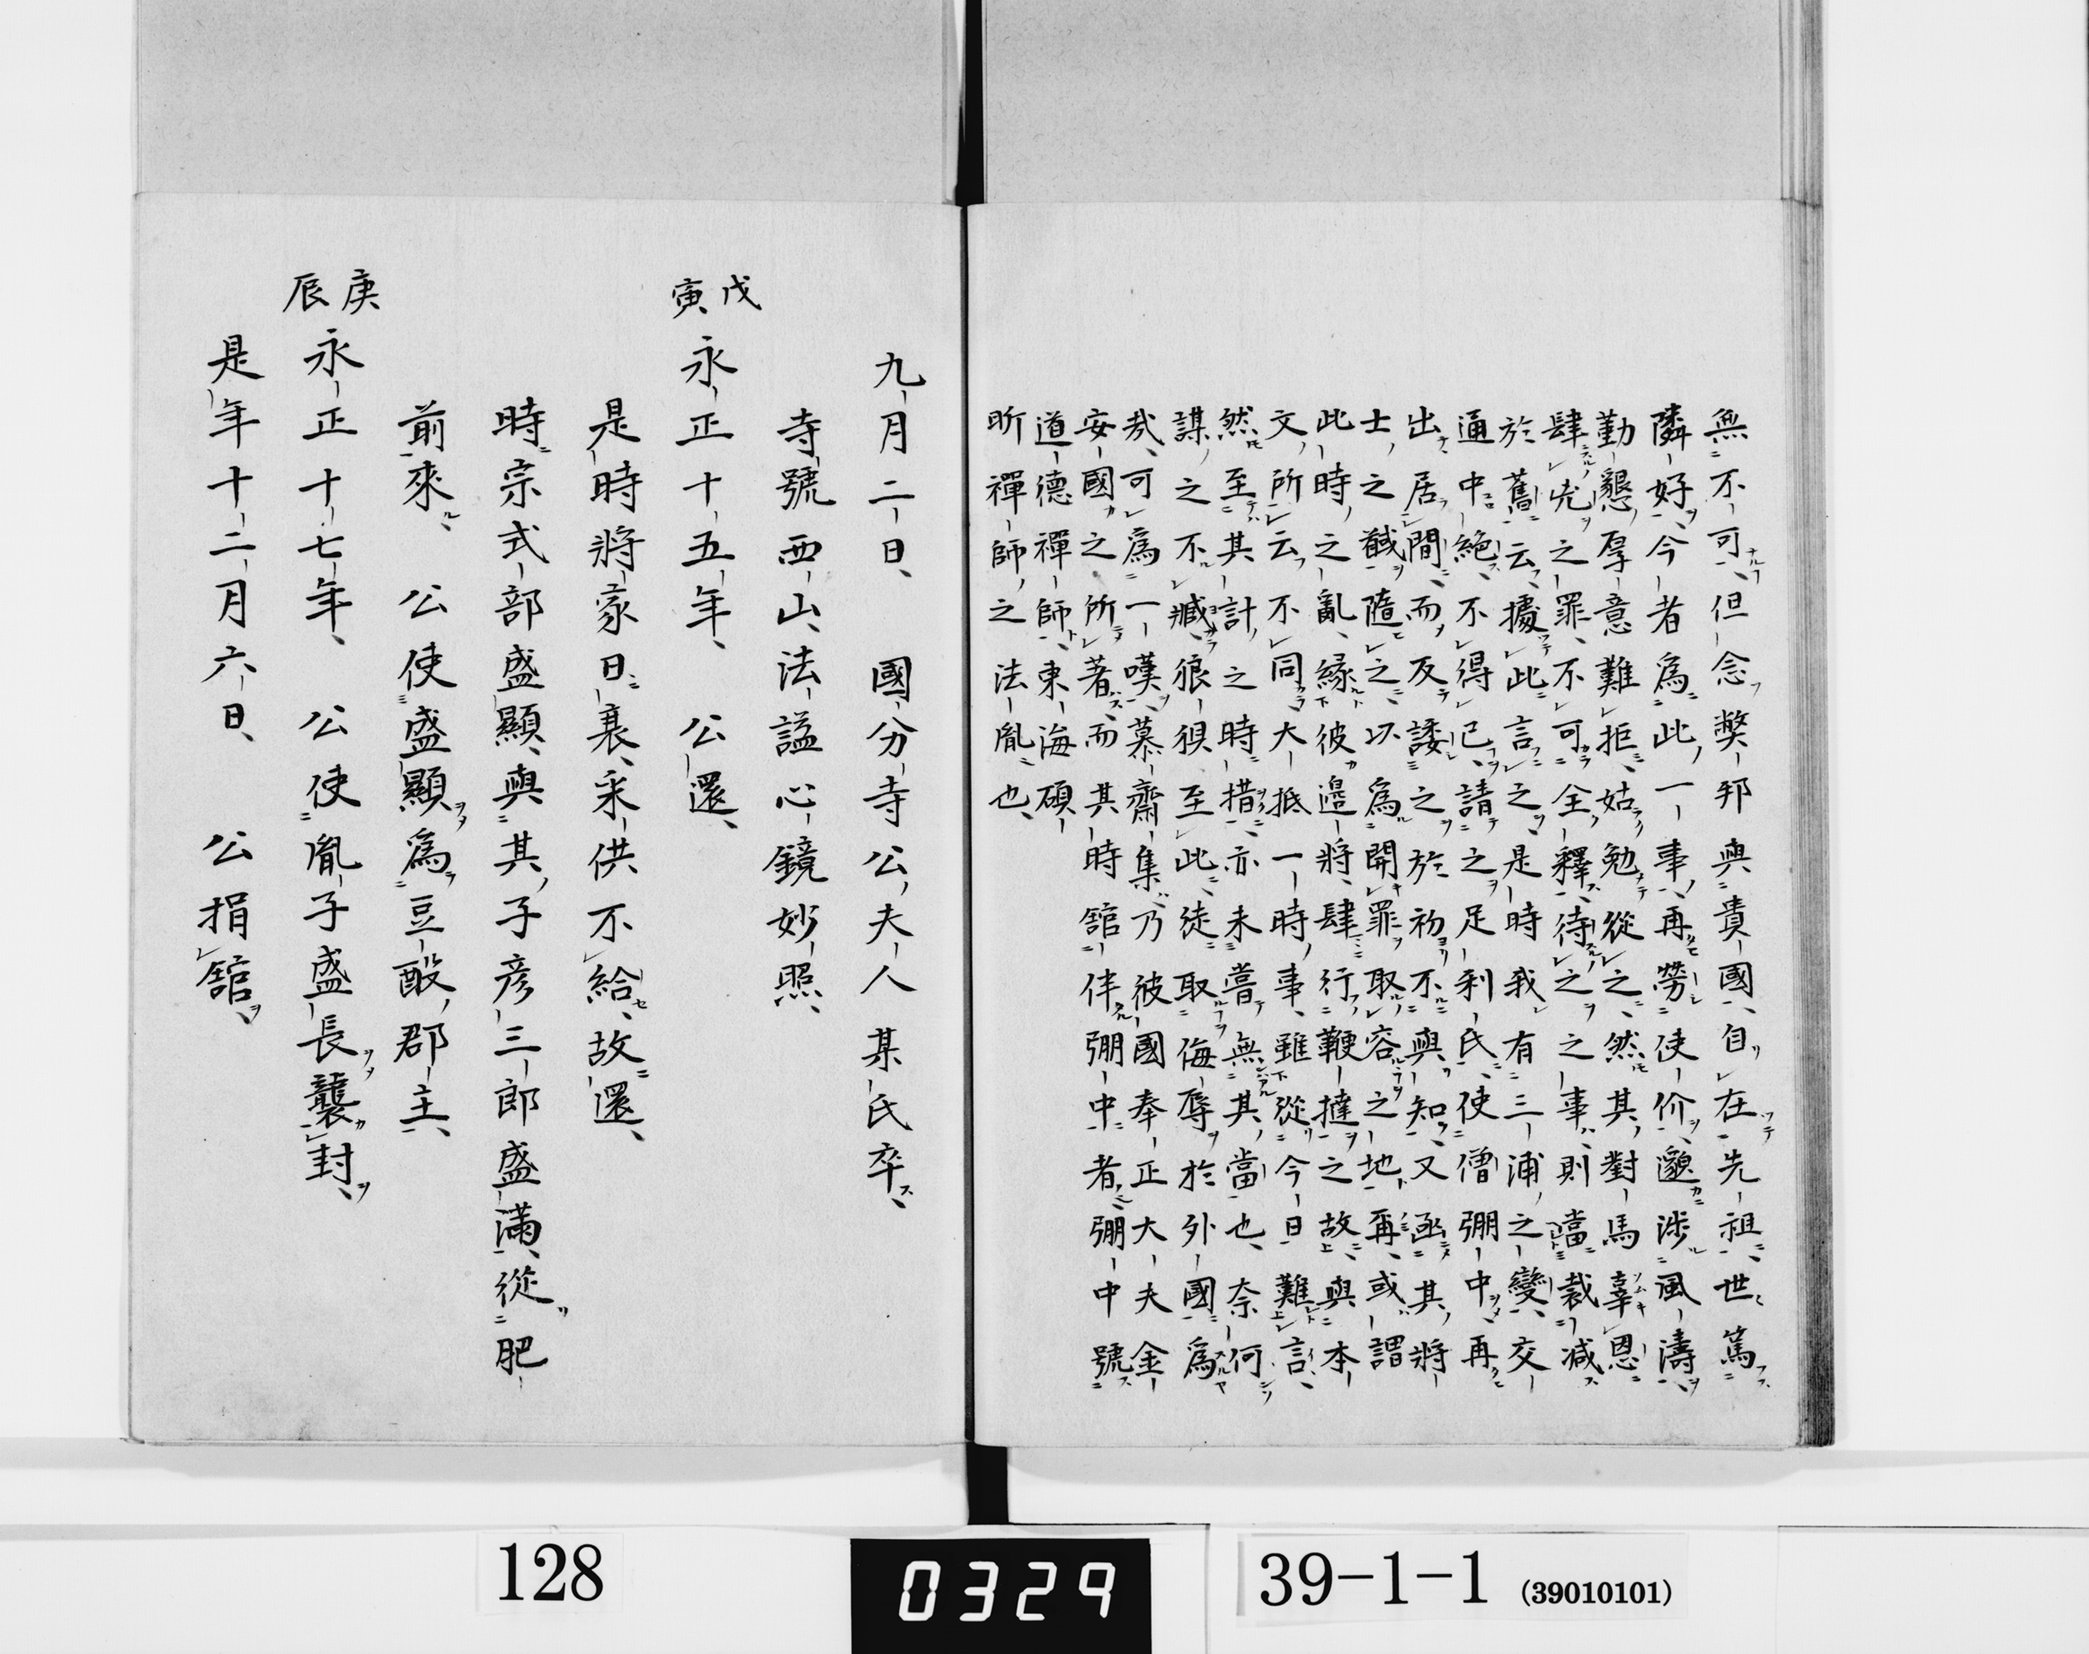 無不可但念弊邦與貴國自在先祖世篤
隣好今者爲此一事再勞使价邈涉風濤
勤懇厚意難拒姑勉從之然其對馬辜恩
肆兇之罪不可全釋待之之事則當裁減
於舊云據此言之是時我有三浦之變交
通中絶不得已請之足利氏使僧弸中再
出居間而反諉之於初不與知又函其將
士之馘隨之以爲開罪取容之地再或謂
此時之亂縁彼邉將肆行鞭撻之故與本
文所云不同大抵一時事雖從今日難言
然至其計之時措亦未嘗無其當也奈何
謀之不臧狼狽至此徒取侮辱於外國爲
哉可爲一嘆慕齋集乃彼國奉正大夫金
安國之所著而其時舘伴弸中者弸中號
道德禪師東海碩
昕禪師之法胤也
九月二日 國分寺公夫人某氏卒
寺號西山法謚心鏡妙照
戊寅 永正十五年 公還
是時將家日衰采供不給故還
時宗式部盛顯與其子彦三郎盛滿從肥
前來 公使盛顯爲豆酘郡主
庚辰 永正十七年 公使胤子盛長襲封
是年十二月六日 公捐舘
128
0329
39-1-1 (39010101)